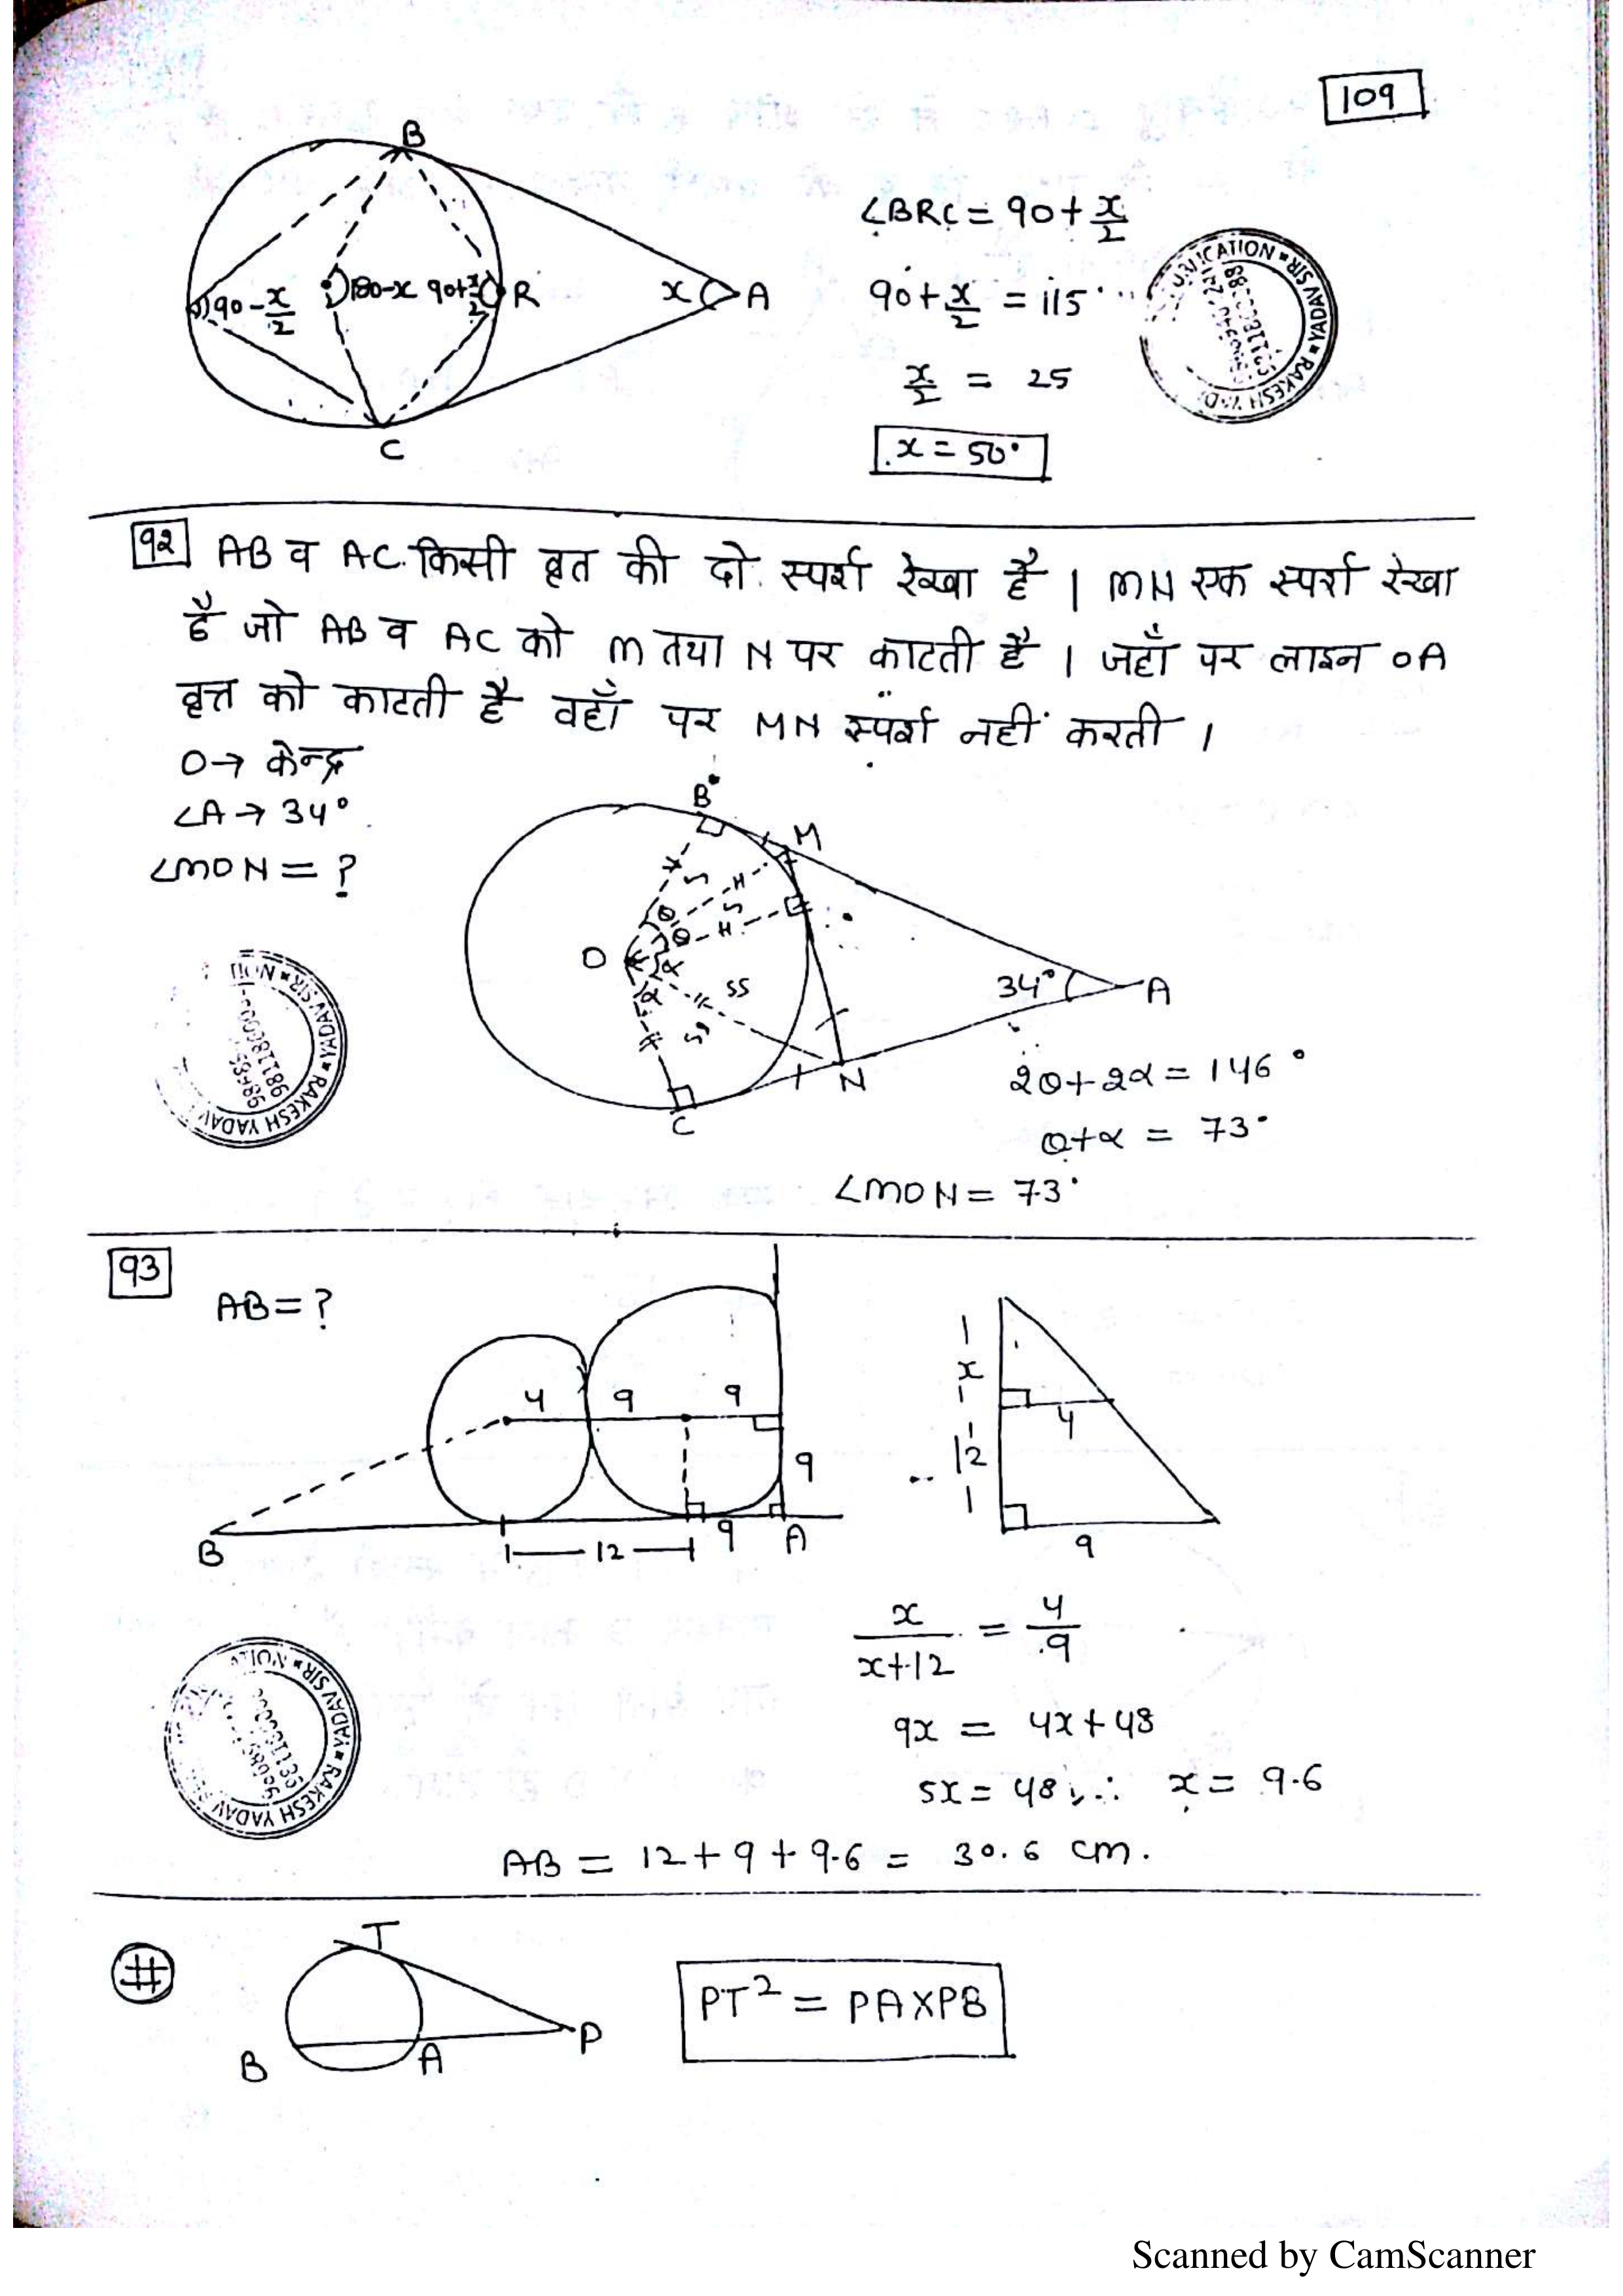 109
B
∠BRC = 90 + x/2
90 - x/2
180-x
90+x/2
R
x
A
C
90 + x/2 = 115°
x/2 = 25
x = 50°
92 AB व AC किसी वृत की दो स्पर्श रेखा है। MN एक स्पर्श रेखा
है जो AB व AC को M तथा N पर काटती है। जहाँ पर लाइन OA
वृत्त को काटती है वहाँ पर MN स्पर्श नहीं करती।
O → केन्द्र
∠A → 34°
∠MON = ?
B
M
θ
θ
O
α
α
34°
A
N
C
2θ + 2α = 146°
θ + α = 73°
∠MON = 73°
93
AB = ?
4
9
9
9
B
12
9
A
x
4
12
9
x/x+12 = 4/9
9x = 4x + 48
5x = 48 ∴ x = 9.6
AB = 12 + 9 + 9.6 = 30.6 cm.
#
T
P
B
A
PT² = PA×PB
RAKESH YADAV
YADAV SIR
Scanned by CamScanner